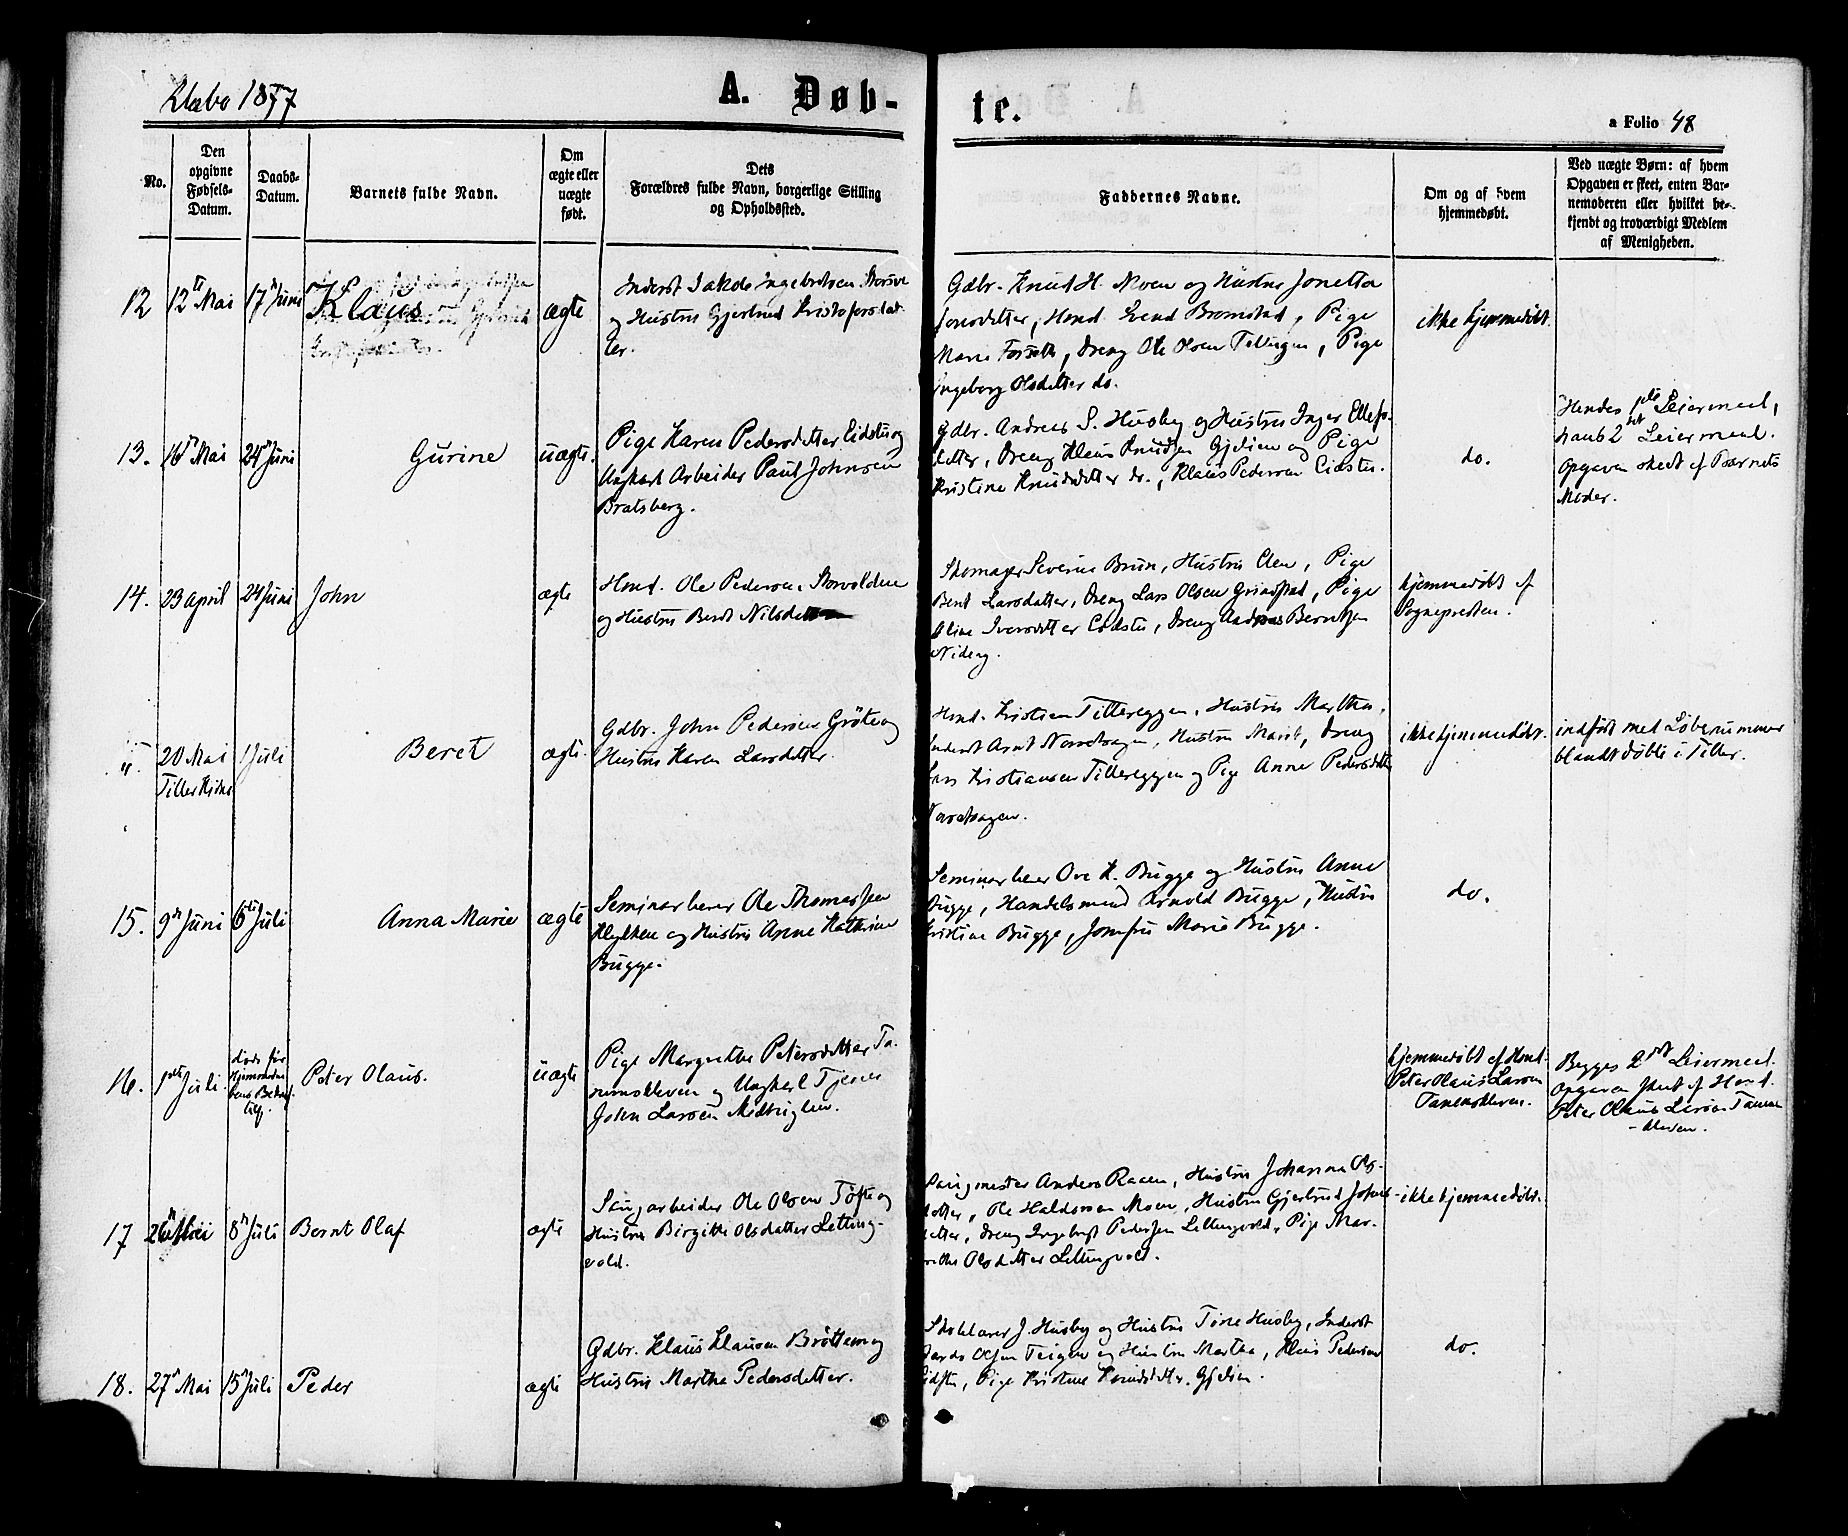 Klæbo 1877
A. Døb-
te.
a Folio 48
No.
Den
opgivne
Fødsels-
Datum.
Daabs-
Datum.
Barnets fulde Navn.
Om
ægte eller
uægte
født.
Dets
Forældres fulde Navn, borgerlige Stilling
og Opholdssted.
Faddernes Navne.
Om og af hvem
hjemmedøbt.
Ved uægte Børn: af hvem
Opgaven er skeet, enten Bar-
nemoderen eller hvilket be-
kjendt og troværdigt Medlem
af Menigheden.
12
12te Mai
17de Juni
Klaus
ægte
Inderst Jakob Ingebretsen
og Hustru Gjertrud Kristofersdat-
ter.
Gdbr. Knud H. Moen og Hustru Jonetta
Hmd. Svend Bromstad, Pige
Marie Forseth, Dreng Ole Olsen Tellugen, Pige
Ingeborg Olsdatter do.
ikke hjemmedøbt.
13.
16de Mai
24de Juni
Gurine
uægte.
Pige Karen Pedersdatter Eidstu og
Ungkarl Arbeider Paul Johnsen
Bratsberg.
Gdbr. Andreas S. Husby og Hustru Inger Ellefs-
datter, Dreng Klaus Knudsen Gjellien og Pige
Kristine Knudsdatter do., Klaus Pedersen Eidstu.
do.
Hendes 1ste Leiermaal,
hans 2det Leiermaal.
Opgaven skeet af Barnets
Moder.
14.
23 April
24 Juni
John
ægte
Hmd. Ole Pedersen Storvolden
og Hustru Beret Nilsdatter
Skomager Severin Brun, Hustru Elen, Pige
Beret Larsdatter, Dreng Lars Olsen Grindstad, Pige
Oline Iversdatter Eidstu, Dreng Andreas Berntsen
Nideng.
hjemmedøbt af
Sognepresten.
"
20 Mai
Tiller Kirke
1 Juli
Beret
ægte.
Gdbr. John Pedersen Grøte og
Hustru Karen Larsdatter.
Hmd. Kristian Tillereggen, Hustru Martha,
Inderst Arnt Hustru Marit, Dreng
Lars Kristiansen Tillereggen og Pige Anne Pedersdatter
ikke hjemmedøbt.
indført med Løbenummer
blandt døbte i Tiller.
15.
9de Juni
6te Juli
Anna Marie
ægte
Seminarlærer Ole Thomassen
og Hustru Anne Kathrine
Bugge.
Seminarlærer Ove K. Bugge og Hustru Anne
Bugge, Handelsmand Arnold Bugge, Hustru
Kristine Bugge, Jomfru Marie Bugge.
do.
16.
1ste Juli
døde før
Hjemmedaa-
bens Bekræf-
telse.
Peter Olaus.
uægte
Pige Margrethe Petersdatter Ta-
nemskleven og Ungkarl Tjener
John Larsen Midtliglien.
hjemmedøbt af Hmd.
Peter Olaus Larsen
Tanemskleven.
Begges 2det Leiermaal.
Opgaven skeet af Hmd.
Peter Olaus Larsen Tanem-
-kleven.
17
26de Mai
8de Juli
Bernt Olaf
ægte
Saugarbeider Ole Olsen Tøfte og
Hustru Birgitte Olsdatter Letting-
vold.
Saugmester Anders Raaen, Hustru Johanna Ols-
datter, Ole Haldorsen Moen, Hustru Gjertrud Josefs-
datter, Dreng Ingebrigt Pedersen Lettingvold, Pige Mar-
grethe Olsdatter Lettingvold.
ikke hjemmedøbt.
18.
27de Mai
15de Juli
Peder
ægte
Gdbr. Klaus Klausen Brøttem og
Hustru Martha Pedersdatter.
Skolelærer J. Husby og Hustru Tone Husby, Inderst
Olsen Teigen og Hustru Martha, Klaus Pedersen
Eidstu, Pige Kristine Knudsdatter Gjellien.
do.